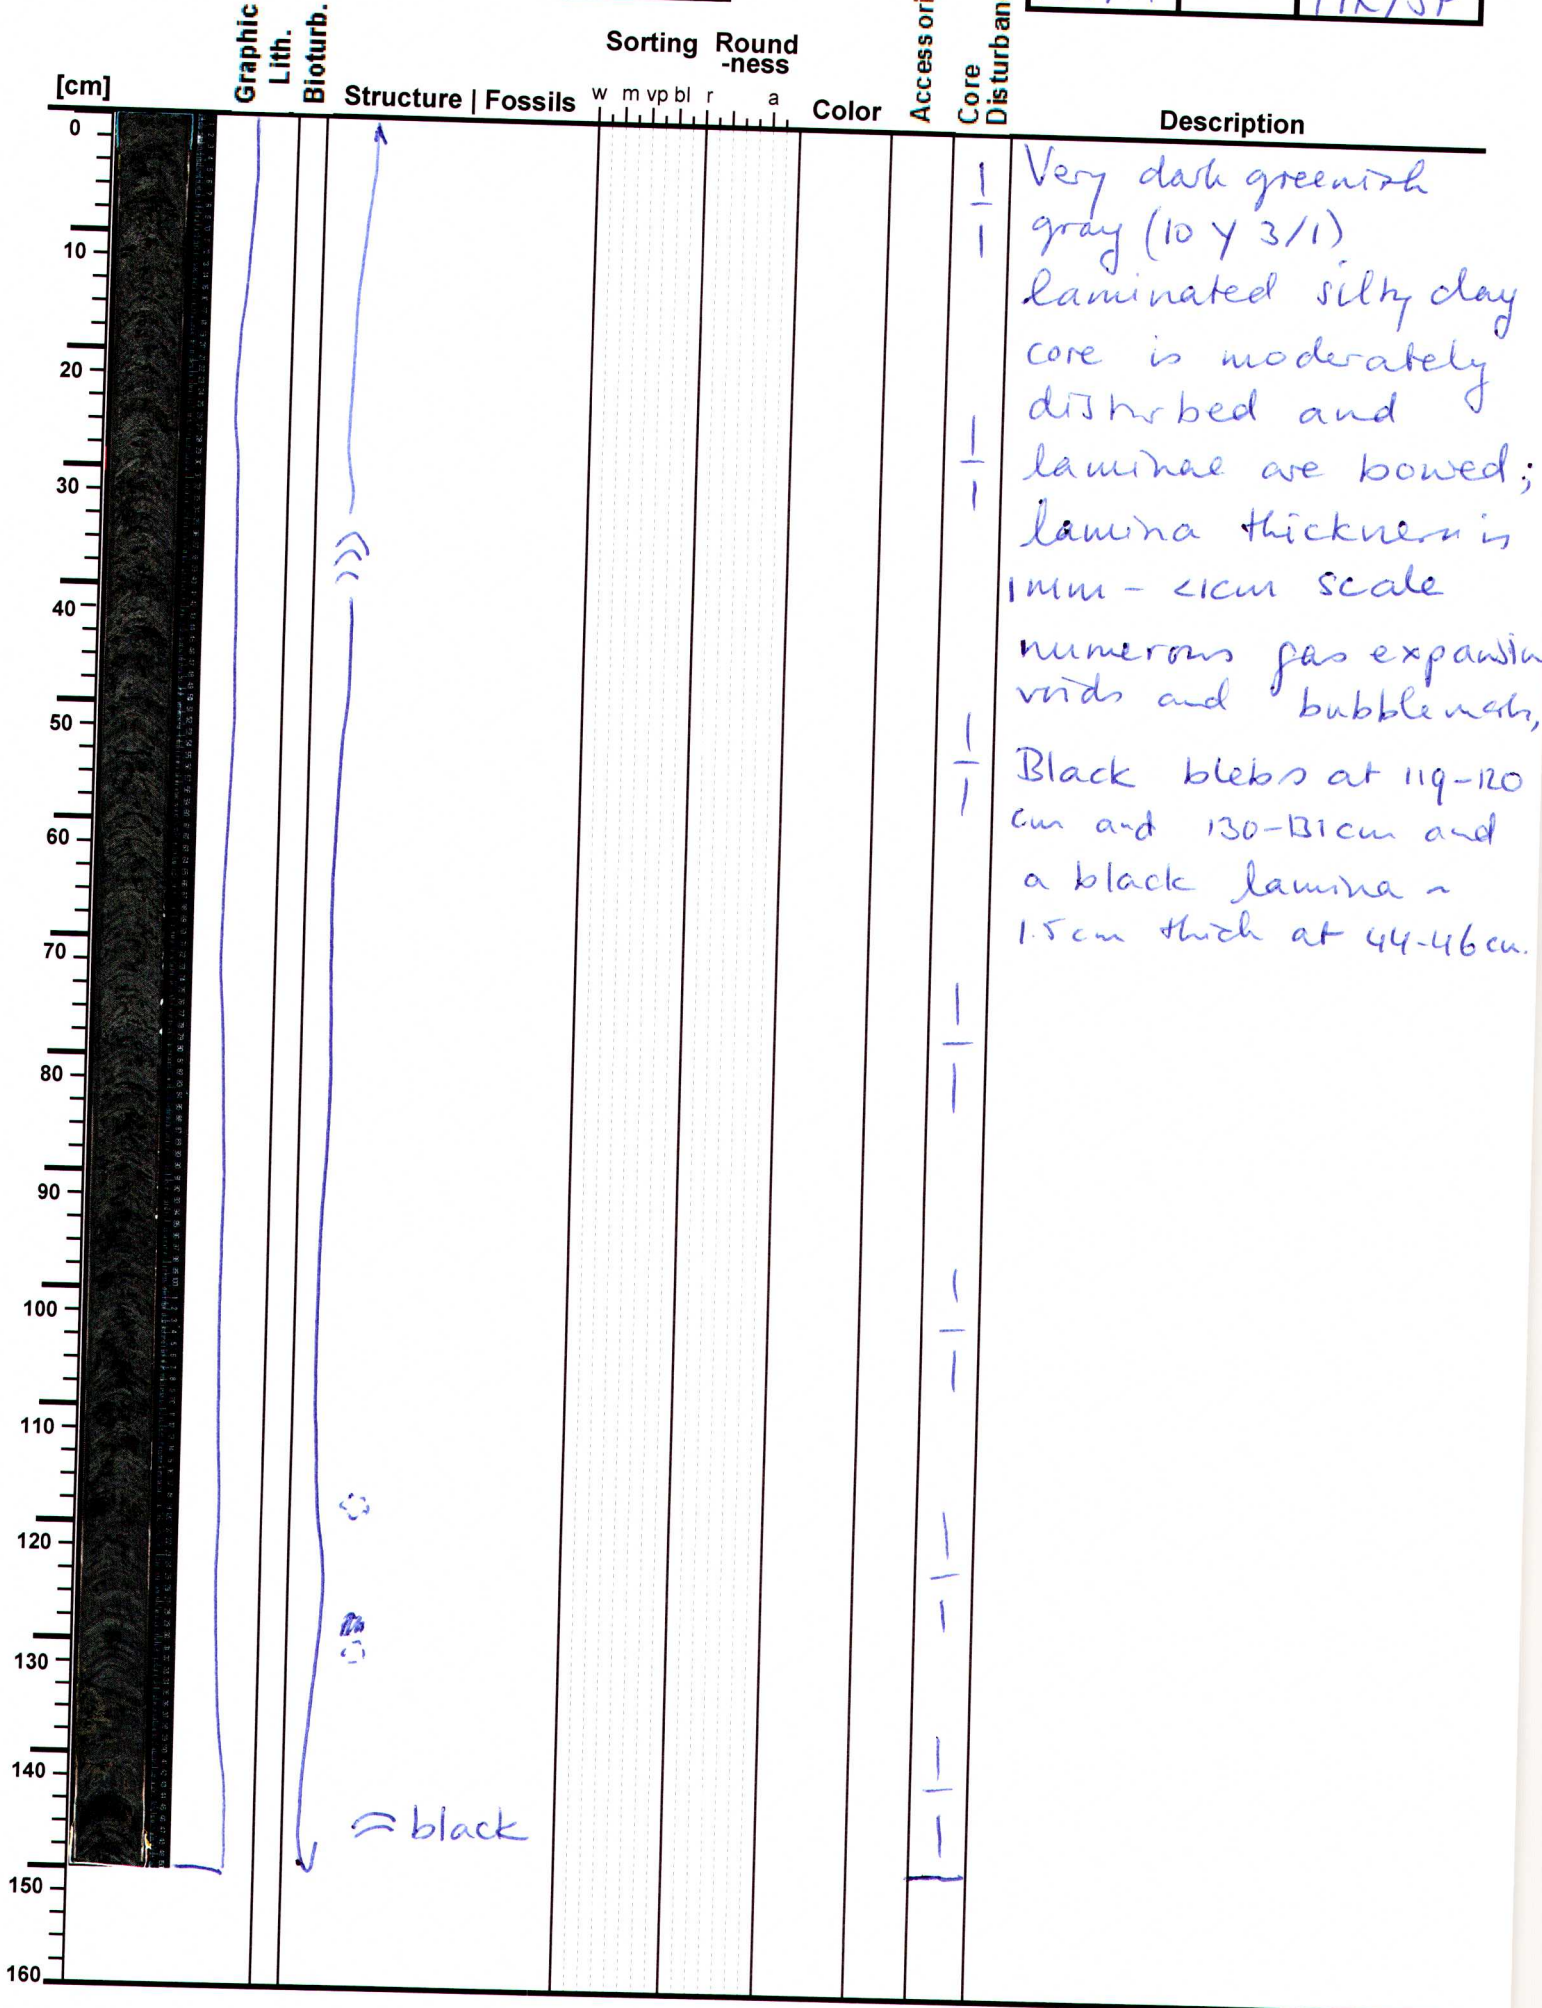 Graphic
Lith.
Bioturb.
Structure | Fossils
Sorting
w m vp bl
Round
-ness
r a
Color
Accessori
Core
Disturban
Description
[cm]
0
10
20
30
40
50
60
70
80
90
100
110
120
130
140
150
160
Very dark greenish
gray (10 Y 3/1)
laminated silty clay
core is moderately
disturbed and
laminae are bowed;
lamina thickness is
1mm - <1cm scale
numerous gas expansion
voids and bubble marks,
Black blebs at 119-120
cm and 130-131cm and
a black lamina ~
1.5cm thick at 44-46cm.
= black